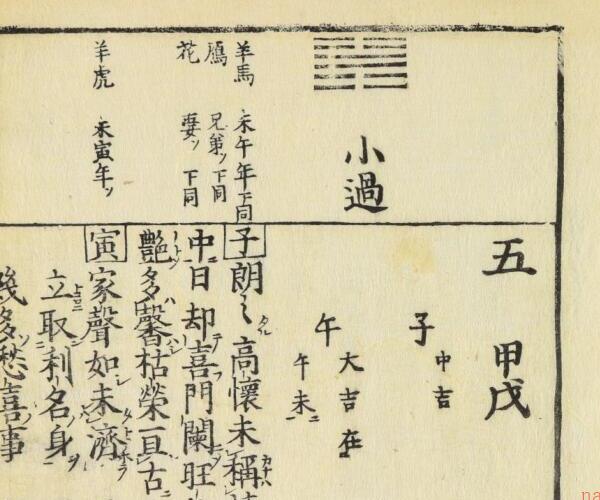 五 甲戊
子 中吉
午 大吉在
午未ニ
小過
羊馬 未午年下同
鴈 兄弟ノ下同
花 妻ノ下同
羊虎 未寅年ノ
子朗々高懷未稱
中日却喜門闌旺
艷多馨枯榮亘古
寅家聲如未濟
立取利名身
幾多愁喜事